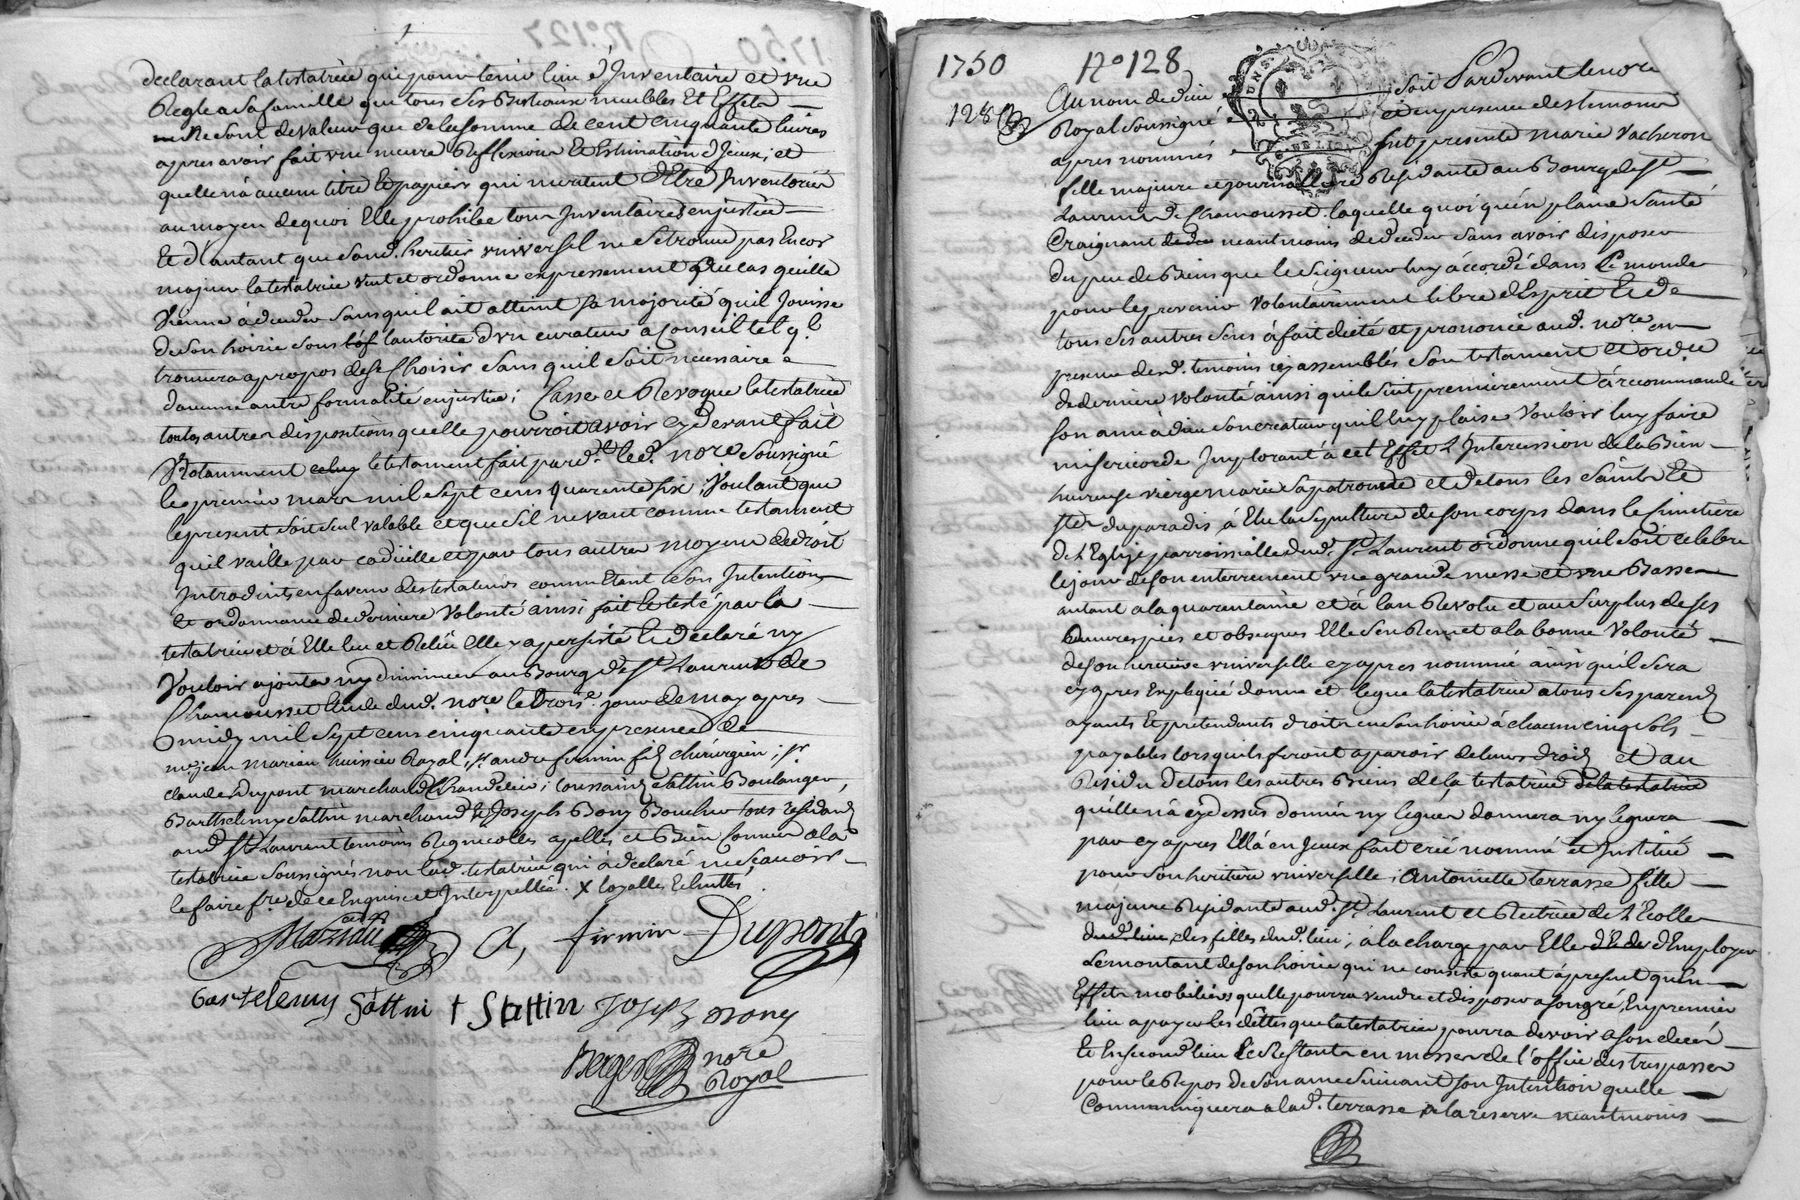 declarant la testatrice que pour tenir lieu d'Inventaire et vne
Regle a sa famille que tous ses Bestiaux meubles Et Effets
ne sont de valeur que de la somme de cent cinquante livres
apres avoir fait vne meure Reflexion Et Estimation d'Jceux; et
quelle n'à aucun titre Et papiers qui meritent d'Etre Inventoriés
au moyen de quoi Elle prohibe tous Inventaires en justice
Et d'autant que sond. heritier vniversel ne se trouve pas Encor
majeur la testatrice veut et ordonne expressement qu'en cas quelle
vienne à deceder sans qu'il ait atteint sa majorité qu'il Jouisse
de son hoirie sous l'autorité d'vn curateur a Conseil tel q.l
trouvera a propos de se Choisir sans qu'il soit necessaire
d'aucune autre formalité en justice; Casse et Revoque la testatrice
toutes autres dispositions quelle pourroit avoir cydevant fait
Notamment le testament fait pard.t led. nore soussigné
le premier mars mil sept cens quarante six; Voulant que
le present soit seul valable et que s'il ne vaut comme testament
qu'il vaille par codicille et par tous autres moyens de droit
Introduits en faveur des testateurs commettant son Intention
et ordonnance de derniere volonté ainsi fait Et testé par la
testatrice et à Elle leu et Releu Elle y a persisté Et declaré ny
Vouloir ajouter ny diminuer au Bourg de St Laurent de
Chamousset Etude dud. nore le trois.e jour de may apres
midy mil sept cens cinquante en presence de
me jean marian huissier Royal; sr andre firmin fils chirurgien; sr
claude dupont marchand Chandelier; toussaind sattin Boulanger,
Barthelemy sattin marchand Et Joseph Bony Boucher tous residans
aud. St Laurent temoins Regnicolles apelles et Bien Connus a la
testatrice soussignés non lad. testatrice qui à declaré ne scavoir
le faire fe. de ce Enquise et Interpellée. x
Marian
A, firmin Dupont
bartelemy Sattin t Sattin Joseph Bony
Berger nore
Royal
1750 No 128
128e
Au nom de dieu soit Pardevant le nore
Royal soussigné et en presence des temoins
apres nommés fut presente marie Vacheron
fille majeure et journalliere Residante au Bourg de St
Laurent de Chamousset. laquelle quoi qu'en plaine santé
Craignant neantmoins de deceder sans avoir disposer
du peu de Biens que le seigneur luy à accordé dans le monde
pour le prevenir volontairement libre d'Esprit Et de
tous ses autres sens à fait dicté et prononcé aud. nore en
presence desd. temoins icy assemblés son testament et ord.ce
de derniere volonté ainsi qu'il suit premierement à recommandé
son ame à dieu son createur qu'il luy plaise vouloir luy faire
misericorde Implorant à cet Effet L'Intercession de la Bien
heureuse vierge marie sa patronne et de tous les saints Et
stes du paradis, à Elu la sepulture de son corps dans le simetiere
de L'Eglise parroissialle dud. St Laurent ordonne qu'il soit celebré
le jour de son enterrement vne grande messe et vne Basse
autant a la quarantaine et à l'an Revolu et au surplus de ses
œuvres pies et obseques Elle s'en Remet a la bonne volonté
de son heritiere vniverselle cy apres nommée ainsi qu'il sera
cy apres Expliqué donne et legue la testatrice a tous ses parends
ayants Et pretendants droit en son hoirie à chacun cinq sols
payables lorsqu'ils feront aparoir de leurs droids et au
Residu de tous les autres Biens de la testatrice de la testatrice
quelle n'à cy dessus donné ny legué donnera ny leguera
par cy apres Ell'à en Jceux fait créé nommé et Institué
pour son heritiere vniverselle; Antoinette terrasse fille
majeure Residante aud. St Laurent et Rectrice de L'Ecolle
dud. lieu des filles dud. lieu; à la charge par Elle d'Employer
Le montant de son hoirie qui ne consiste quant à present qu'En
Effets mobiliers quelle pourra vendre et disposer a son gré, En premier
lieu a payer les dettes que la testatrice pourra devoir a son deces
Et En second lieu le Restant en messes de l'office des trespassés
pour le Repos de son ame suivant son Intention quelle
Communiquera a lad. terrasse a la reserve neantmoins